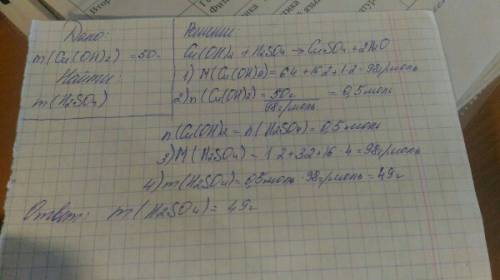 Дано:
m(Cu(OH)2) = 50г
Найти:
m(H2SO4)
Решение:
Cu(OH)2 + H2SO4 → CuSO4 + 2H2O
1) M(Cu(OH)2) = 64+16·2+1·2 = 98г/моль
2) n(Cu(OH)2) = 50г / 98г/моль = 0,5 моль
n(Cu(OH)2 = n(H2SO4) = 0,5 моль
3) M(H2SO4) = 1·2+32+16·4 = 98г/моль
4) m(H2SO4) = 0,5моль · 98г/моль = 49г
Ответ: m(H2SO4) = 49г